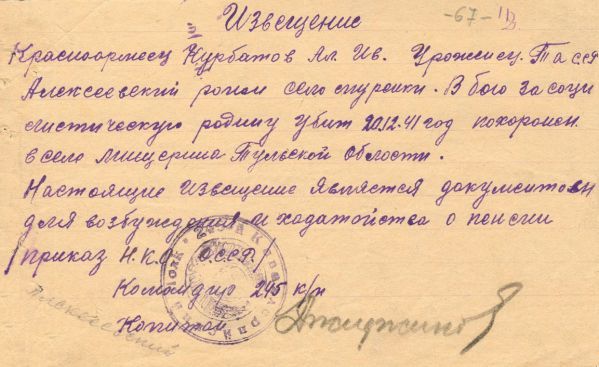 Извещение
-67-
Красноармеец Курбатов Ал. Ив. Урожнец. Та сср
Алексеевский село . В бою за соци
листическую родину убит 20.12.41 год похоронен
в село Мищерина Тульской Области.
Настоящие извещение является документом
для возбуждения и ходатойства о пенсии
/приказ Н.К.О. СССР/
245 к/п
Алексеевский